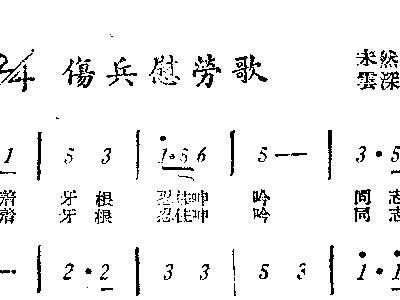 2/4 傷兵慰勞歌 未然
雲深
1 | 5 3 | 1·5 6 | 5 — — | 3·5
牙 根 忍住呻 吟 同志
牙 根 忍住呻 吟 同志
— | 2·2 | 3 3 | 5 3 | 1·1